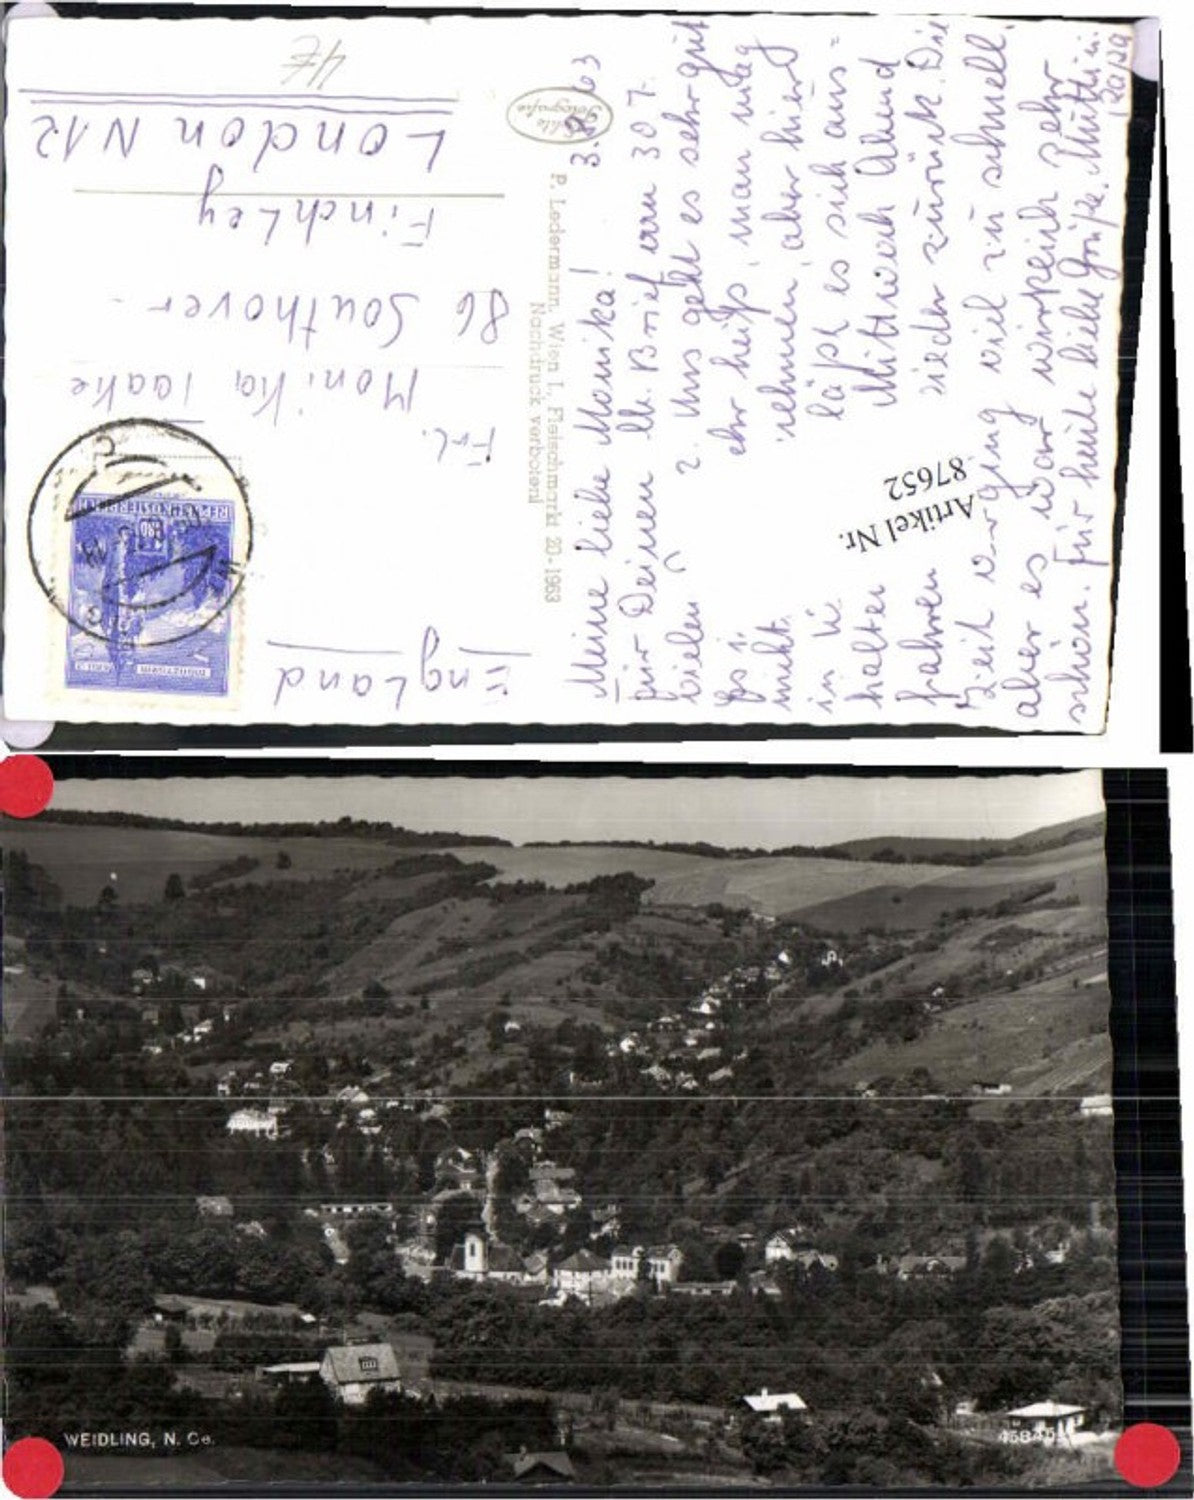 3.8.63
Meine liebe Monika!
für Deinen lb. Brief vom 30.7.
vielen Uns geht es sehr gut
Es i. sehr heiß, man mag
nicht nehmen, aber hier
in läßt es sich aus=
halten Mittwoch Abend
fahren wieder zurück. Die
Zeit verging viel zu schnell,
aber es war wirklich sehr
schön. Für heute liebe Grüße. Mutti u.
Papa
Artikel Nr.
87652
P. Ledermann, Wien I., Fleischmarkt 20 - 1963
Nachdruck verboten!
Echte
Fotografie
REPUBLIK ÖSTERREICH
Frl.
Monika Taake
86 Southover -
Finchley
London N12
England
WEIDLING, N. Oe.